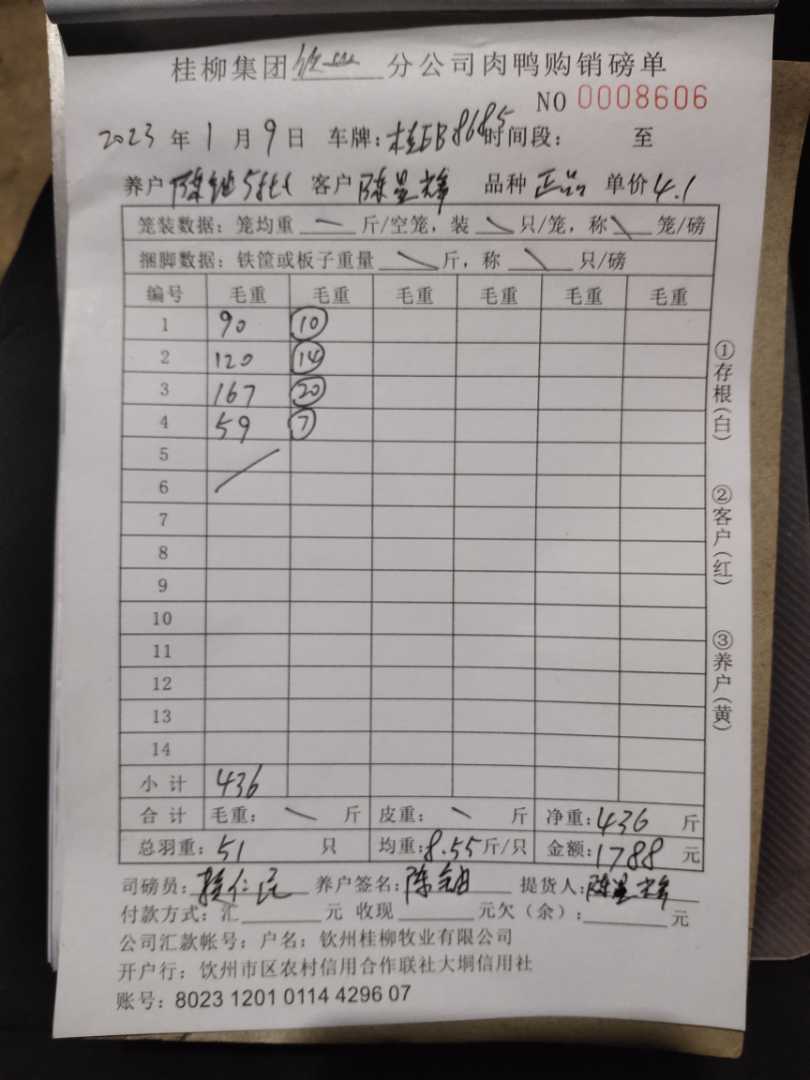 桂柳集团钦州分公司肉鸭购销磅单
NO 0008606
2023年1月9日 车牌:桂EB8685时间段: 至
养户陈 客户陈星辉 品种正品 单价4.1
笼装数据:笼均重 — 斤/空笼,装 \ 只/笼,称 \ 笼/磅
捆脚数据:铁筐或板子重量 \ 斤,称 \ 只/磅
编号 毛重 毛重 毛重 毛重 毛重 毛重
1 90 10
2 120 14
3 167 20
4 59 7
5
6
7
8
9
10
11
12
13
14
小计 436
合计 毛重: \ 斤 皮重: \ 斤 净重:436 斤
总羽重:51 只 均重:8.55斤/只 金额:1788 元
司磅员: 养户签名:陈 提货人:陈星辉
付款方式:汇 元 收现 元欠(余): 元
公司汇款帐号:户名:钦州桂柳牧业有限公司
开户行:钦州市区农村信用合作联社大垌信用社
账号:8023 1201 0114 4296 07
①存根(白)
②客户(红)
③养户(黄)